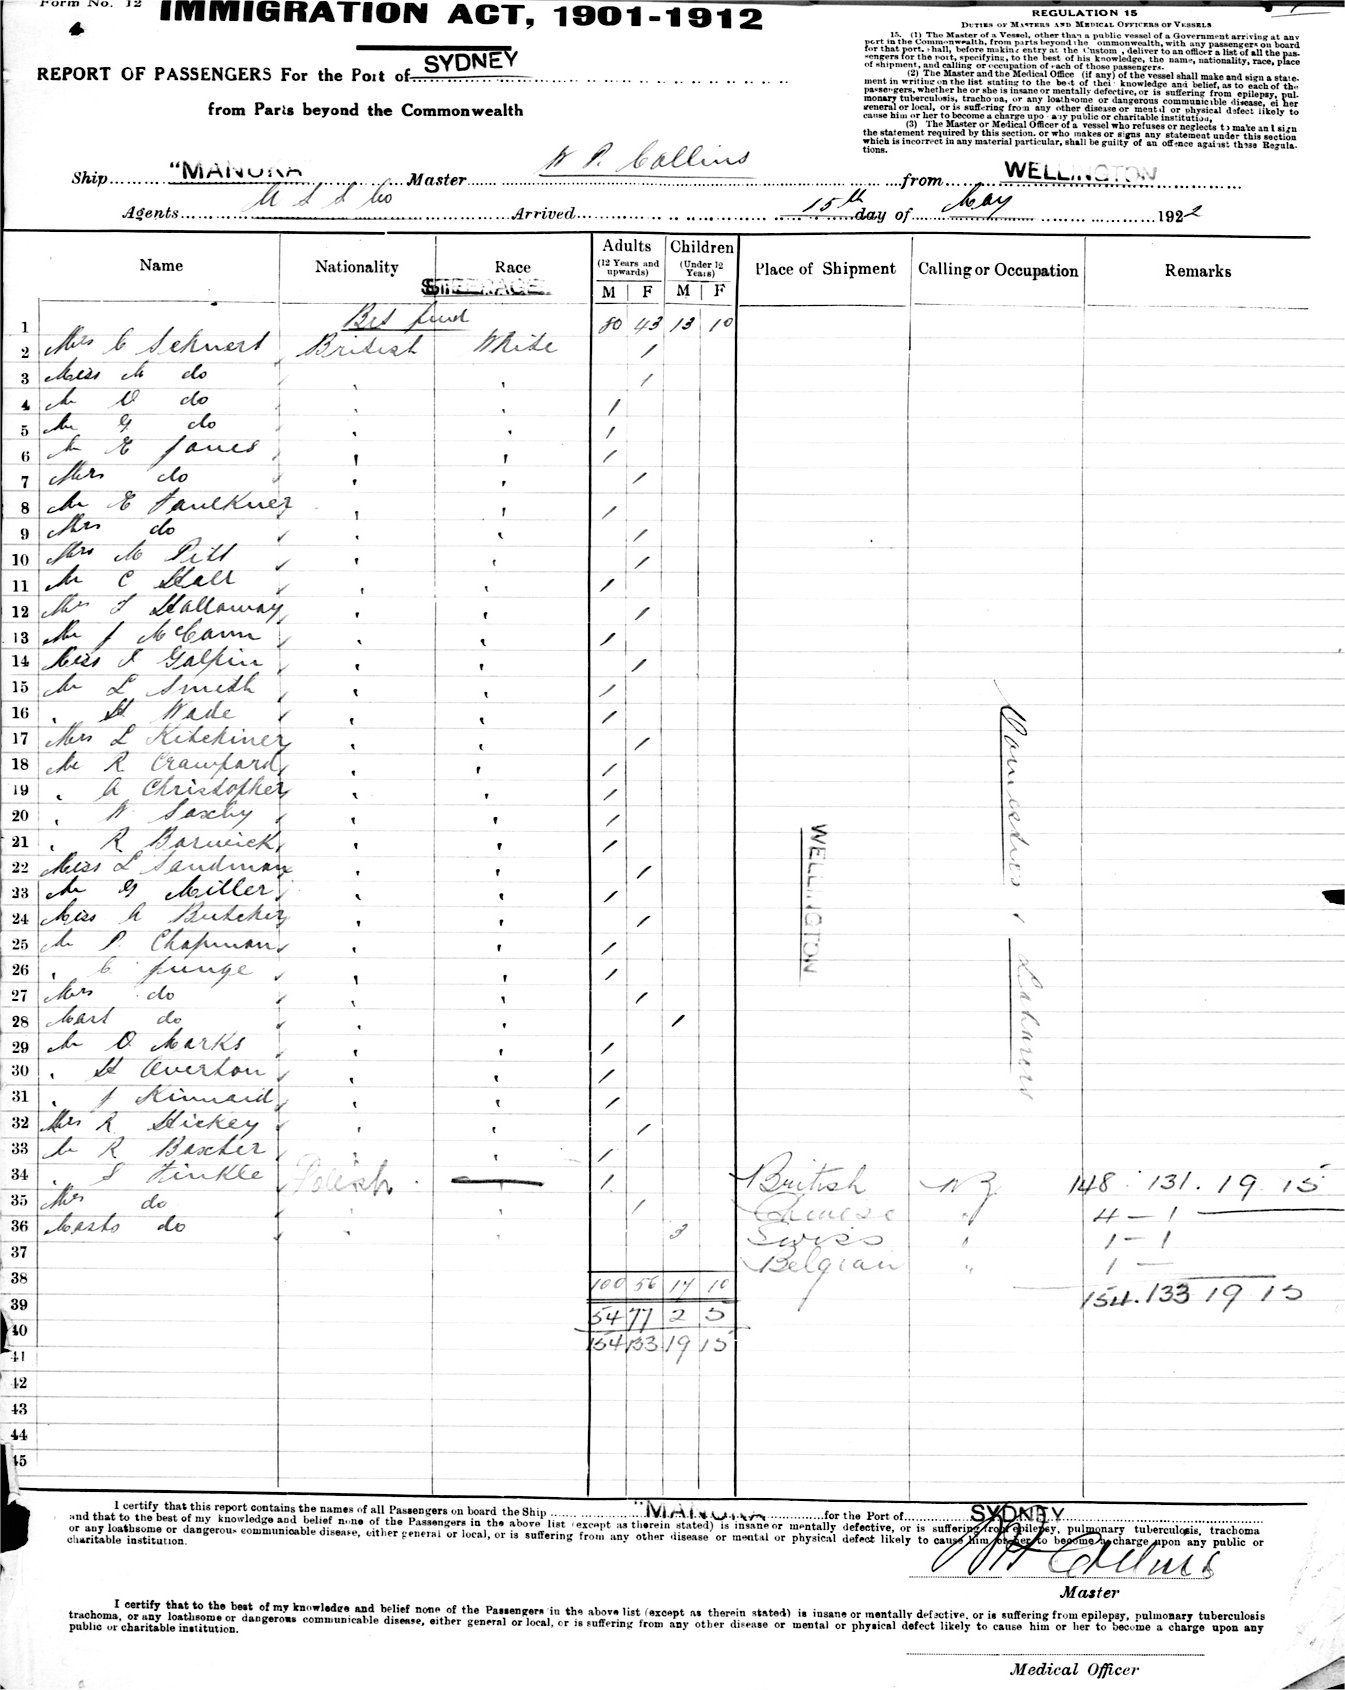 Form No. 12
IMMIGRATION ACT, 1901-1912
4
REPORT OF PASSENGERS For the Port of SYDNEY
from Parts beyond the Commonwealth
REGULATION 15
DUTIES OF MASTERS AND MEDICAL OFFICERS OF VESSELS
15. (1) The Master of a Vessel, other than a public vessel of a Government arriving at any
port in the Commonwealth, from parts beyond the ommonwealth, with any passengers on board
for that port. shall, before making entry at the Custom , deliver to an officer a list of all the pas-
sengers for the port, specifying, to the best of his knowledge, the name, nationality, race, place
of shipment, and calling or occupation of each of those passengers.
(2) The Master and the Medical Office (if any) of the vessel shall make and sign a state-
ment in writing on the list stating to the best of their knowledge and belief, as to each of the
passengers, whether he or she is insane or mentally defective, or is suffering from epilepsy, pul-
monary tuberculosis, trachoma, or any loathsome or dangerous communicible disease, ei her
general or local, or is suffering from any other disease or mental or physical defect likely to
cause him or her to become a charge upo any public or charitable institution.
(3) The Master or Medical Officer of a vessel who refuses or neglects to make and sign
the statement required by this section. or who makes or signs any statement under this section
which is incorrect in any material particular, shall be guilty of an offence against these Regula-
tions.
Ship "MANUKA Master W P. Collins from WELLINGTON
Agents U S S Co Arrived 15th day of May 1922
Name Nationality Race Adults (12 Years and upwards) Children (Under 12 Years) Place of Shipment Calling or Occupation Remarks
STEERAGE
M F M F
1 Bt fwd 80 43 13 10
2 Mrs C Schuert British White /
3 Miss M do /
4 Mr O do /
5 Mr G do /
6 Mr E Jones /
7 Mrs do /
8 Mr E Faulkner /
9 Mrs do /
10 Mrs M Pitt /
11 Mr C Hall /
12 Mrs Halloway /
13 Mr J McCann /
14 Miss I Galpin /
15 Mr L Smith /
16 " H Wade /
17 Mrs L Kitchiner /
18 Mr R Crawford /
19 " A Christopher /
20 " W Saxby /
21 " R Barwick /
22 Miss L Sandman /
23 Mr G Miller /
24 Miss A Butcher /
25 Mr P. Chapman /
26 " C Junge /
27 Mrs do /
28 Mast do /
29 Mr O Marks /
30 " H Overton /
31 " J Kinnaid /
32 Mrs R Hickey /
33 Mr R Baxter /
34 " S Finkle Polish / British NZ 148 . 131 . 19 15
35 Mrs do / Chinese " 4 - 1
36 Masts do 3 Swiss " 1 - 1
37 Belgian " 1 -
38 100 56 17 10 154 . 133 19 15
39 54 77 2 5
40 154 133 19 15
41
42
43
44
45
WELLINGTON
Domestics & Labourers
I certify that this report contains the names of all Passengers on board the Ship "MANUKA for the Port of SYDNEY
and that to the best of my knowledge and belief none of the Passengers in the above list (except as therein stated) is insane or mentally defective, or is suffering from epilepsy, pulmonary tuberculosis, trachoma
or any loathsome or dangerous communicable disease, either general or local, or is suffering from any other disease or mental or physical defect likely to cause him or her to become a charge upon any public or
charitable institution.
W P Collins
Master
I certify that to the best of my knowledge and belief none of the Passengers in the above list (except as therein stated) is insane or mentally defective, or is suffering from epilepsy, pulmonary tuberculosis
trachoma, or any loathsome or dangerous communicable disease, either general or local, or is suffering from any other disease or mental or physical defect likely to cause him or her to become a charge upon any
public or charitable institution.
Medical Officer